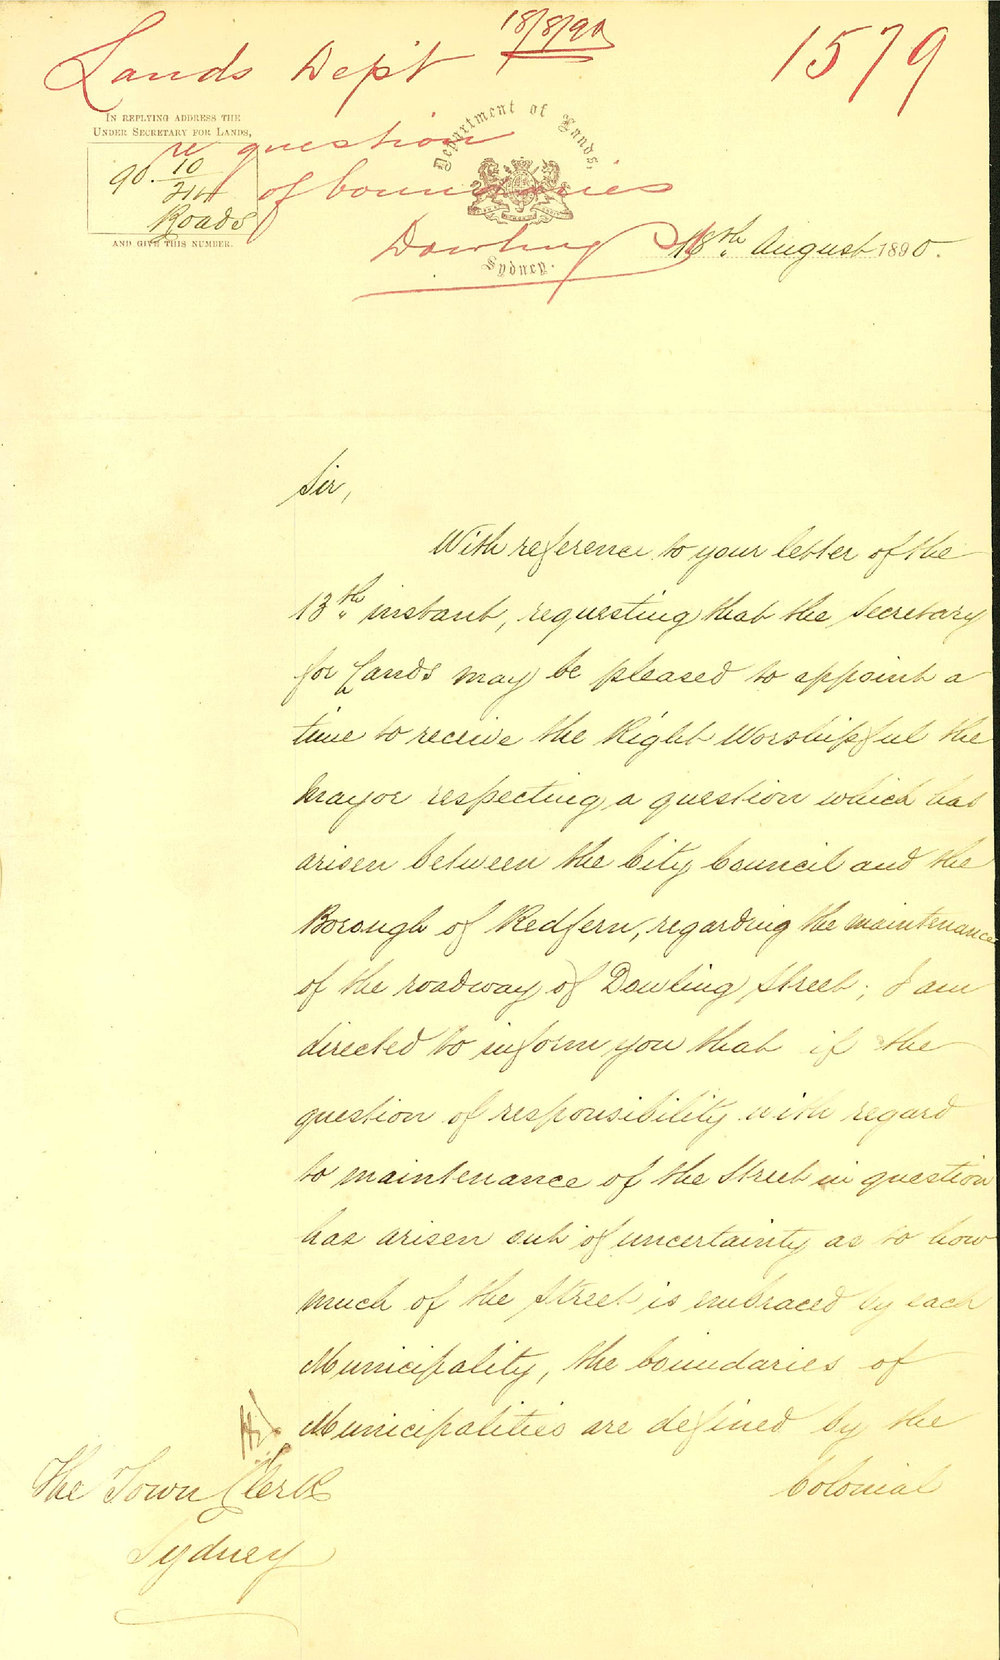 18/8/90
Lands Dept
1579
IN REPLYING ADDRESS THE
UNDER SECRETARY FOR LANDS,
re question
90. 10
244
Roads
of boundaries
AND GIVE THIS NUMBER.
Department of Lands,
Sydney.
Dowling St
18th August 1890.
Sir,
With reference to your letter of the
13th instant, requesting that the Secretary
for Lands may be pleased to appoint a
time to receive the Right Worshipful the
Mayor respecting a question which has
arisen between the City Council and the
Borough of Redfern, regarding the maintenance
of the roadway of Dowling Street; I am
directed to inform you that if the
question of responsibility with regard
to maintenance of the Street in question
has arisen out of uncertainty as to how
much of the Street is embraced by each
Municipality, the boundaries of
Municipalities are defined by the
Colonial
The Town Clerk
Sydney